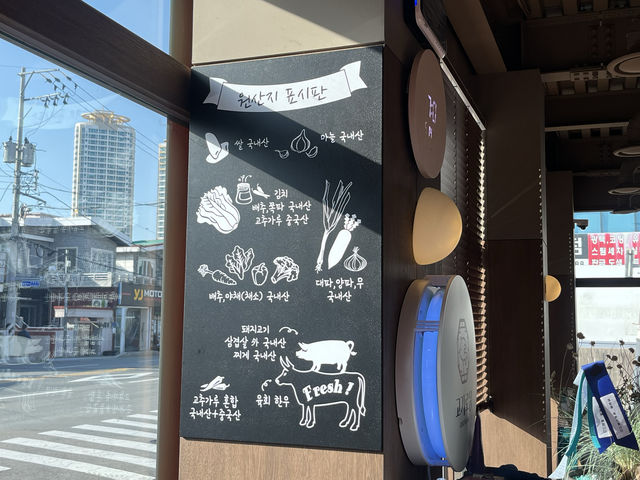 원산지 표시판
쌀 국내산
마늘 국내산
김치
배추,쪽파 국내산
고추가루 중국산
배추,야채(채소) 국내산
대파,양파,무
국내산
돼지고기
삼겹살 외 국내산
찌개 국내산
Fresh!
고추가루 혼합
국내산+중국산
육회 한우
YJ MOTO